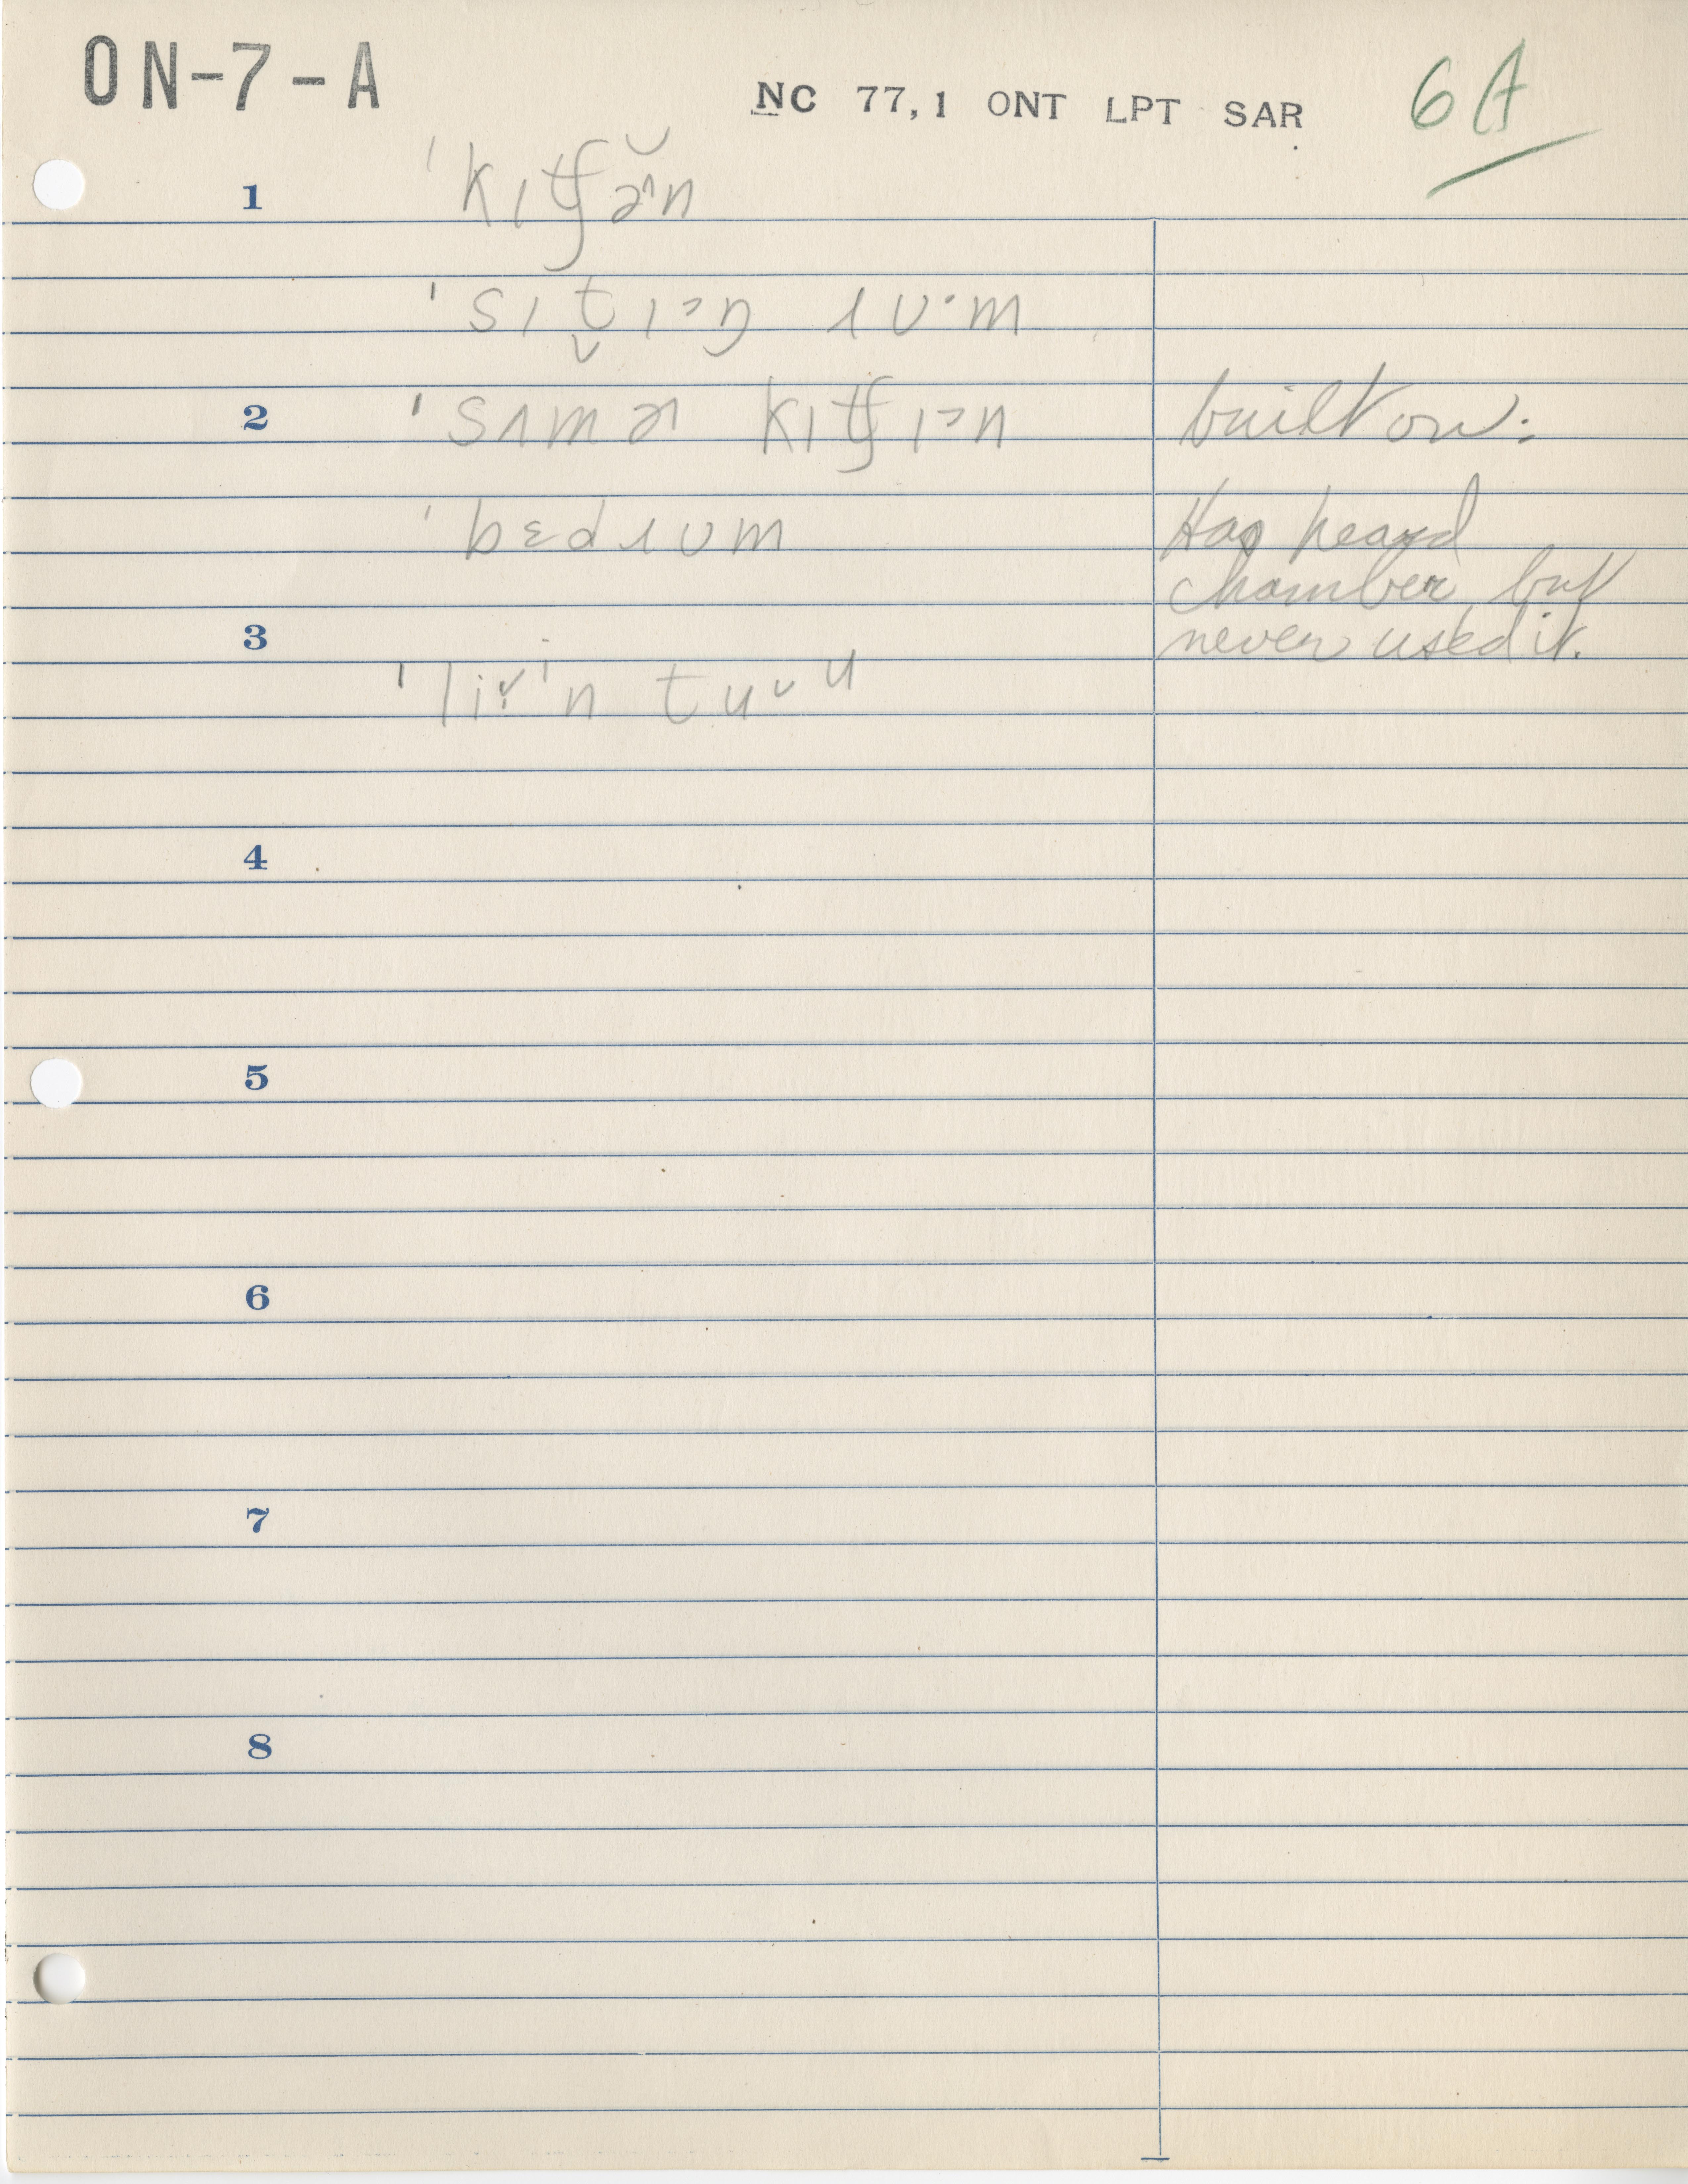 ON-7-A
NC 77,1 ONT LPT SAR
6A
1 ˈkɪʧə̆^n
ˈsɪt̬ɪ˃ŋ ɹʊ·m
2 ˈsʌmɚ kɪʧɪ˃n built on:
ˈbɛdɹʊm Has heard
chamber, but
3 never used it.
ˈliv̬ɪn tuᵛu
4
5
6
7
8